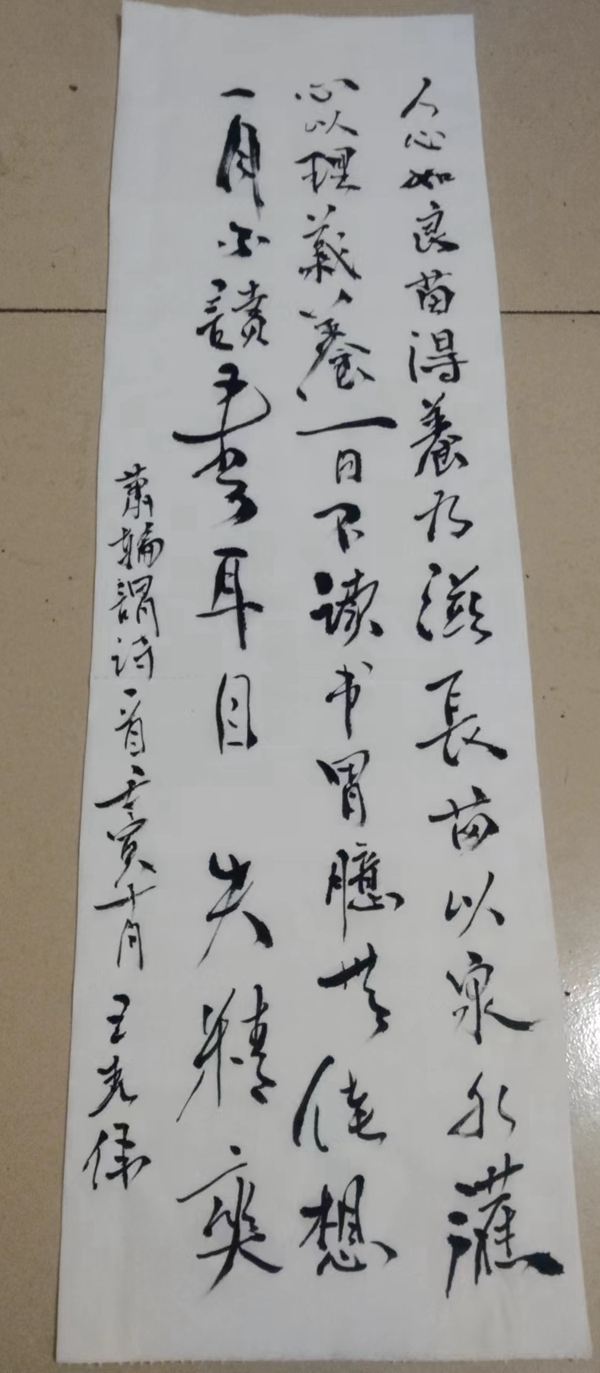 人心如良苗得養乃滋長苗以泉水灌
心以理義養一日不读书胃臆無佳想
一月不讀書耳目失精爽
蕭輪謂诗一首壬寅十月 王